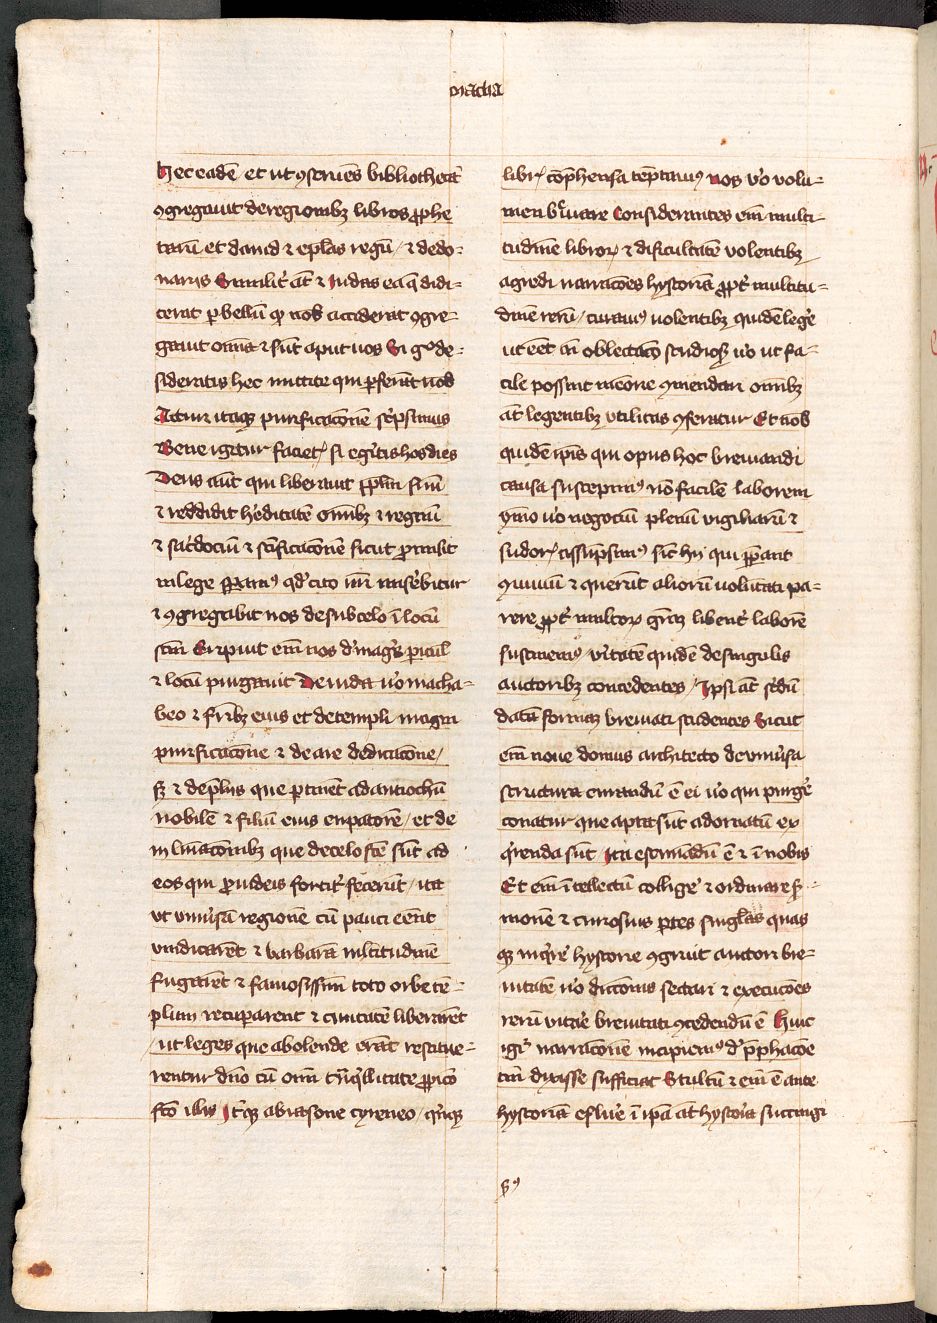 macha
Hec eadē et ut ɔstruēs bibliothecā
ɔgregauit de regionibꝫ libros ꝓphe
tarū et dauid ⁊ eplas regū / ⁊ de do-
narijs Similiẗ aūt ⁊ iudas ea q̄ didi-
cerat ꝑ bellū qḋ nob acciderat ɔgre-
gauit omīa ⁊ sūt aput nos Si gͦ de-
sideratis hec mittite qui ꝑferāt uob
Acturi itaqꝫ purificacōnē sc͛psimus
Bene igitur facietꝭ si egͥtis hos dies
Deus aūt qui liberauit ppl̄m suū
⁊ reddidit h͛editatē omībꝫ ⁊ regnū
⁊ sac͛dociū ⁊ scīficacōnē sicut ꝓmisit
in lege speramꝰ qd cito nrī mis͛ebitur
⁊ ɔgregabit nos de sub celo ī locū
scm̄ Eripuit em̄ nos d̓ magͥs picul̓
⁊ locū purgauit De iuda uͦo macha-
beo ⁊ fr̄ibꝫ eius et de templi magni
purificacōne ⁊ de are dedicacōne /
sꝫ ⁊ de pl̄ijs que ꝑtinēt ad antiochū
nobilē ⁊ filiū eius eupatorē / et de
illuīacōnibꝫ que de celo fcē sūt ad
eos qui ꝓ iudeis fortit̓ fecerūt / ita
ut uniu͛sā regionē cū pauci eēnt
uindicarēt ⁊ barbarā multitudinē
fugarēt ⁊ famosissim̄ toto orbe tē-
plum recuperarent ⁊ ciuitatē liberarēt
/ ut leges que abolende erāt restitue-
rentur dn̄o cū om̄i t͛nqͥllitate ꝓpicio
fcō illis Itꝫqꝫ ab iasone cyreneo / qͥnqꝫ
librꝭ cōp̄hensa tēptauimꝰ nos uͦo volu-
men b͛uiare Considerantes em̄ multi-
tudinē librorꝭ ⁊ dificultatē volentibꝫ
agredi narracōes hystoriā ꝓpt̓ multitu-
dinē rerū / curauimꝰ uolentibꝫ quidē leg͛e
ut eēt aī oblectacō studiosꝭ uͦo ut fa-
cile possint mēorie ɔmendari omībꝫ
aūt legentibꝫ utilitas ɔferatur Et nob
quidē ip̄is qui opus hoc breuiandi
causa suscepimꝰ nō facilē laborem
ymo uͦo negociū plenū vigiliarū ⁊
sudorꝭ assūpsimꝰ sic hij qui p̄parāt
ɔuiuiū ⁊ querūt aliorū uolūtati pa-
rere ꝓpt̓ multorꝭ grām libent̓ laborē
sustinemꝰ u͛itatē quidē de singulis
auctoribꝫ concedentes / Ipsi aūt sc̄dū
datā formaꝫ breuitati studentes Sicut
em̄ noue domus architecto de uniu͛sa
structura curandū ē ei uͦo qui pinge͛
conatur que apta sūt ad ornatū ex
qͥrenda sūt / Ita estimādū ē ⁊ ī nobis
Et em̄ ītellectū collige͛ ⁊ ordinare s͛-
monē ⁊ curiosius ꝑtes singl̄as quas
qꝫ inqͥre͛ hystorie ɔgruit auctori bre-
uitatē uͦo diccōnis sectari ⁊ execucōes
rerū vitare breuitati ɔcedendū ē Huic
igͥ narracōnem incipiemꝰ d̓ p̄phacōe
tm̄ dixisse sufficiat Stultū ⁊ em̄ ē ante
hystoriā eflue͛ ī ip̄a aūt hystoria succingi